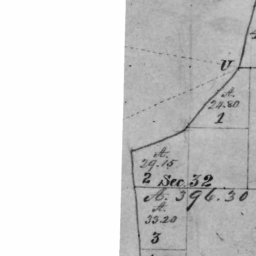 U
A.
24.80
1
A.
29.15
2 Sec. 32
A. 396.30
A.
33.20
3